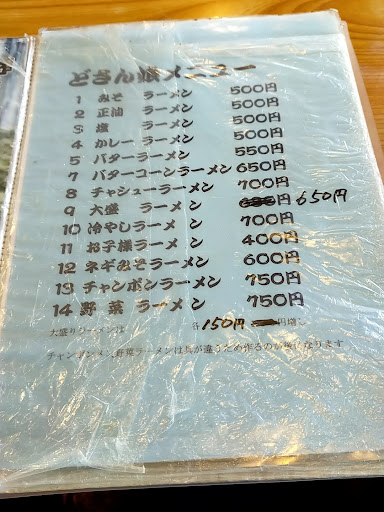 どさん娘メニュー
1 みそ ラーメン 500円
2 正油 ラーメン 500円
3 塩 ラーメン 500円
4 カレーラーメン 550円
5 バターラーメン 550円
7 バターコーンラーメン 650円
8 チャシューラーメン 700円
9 大盛 ラーメン 円 650円
10 冷やしラーメン 700円
11 お子様ラーメン 400円
12 ネギみそラーメン 600円
13 チャンポンラーメン 750円
14 野菜 ラーメン 750円
大盛りラーメンは 各150円 円増し
チャンポンメン,野菜ラーメンは具が違うため作るのが後になります